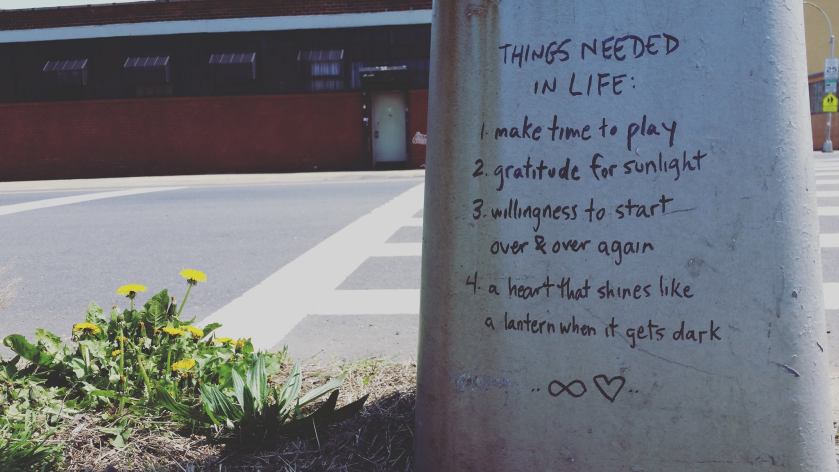 THINGS NEEDED
IN LIFE:
1. make time to play
2. gratitude for sunlight
3. willingness to start
over & over again
4. a heart that shines like
a lantern when it gets dark
..∞♡..